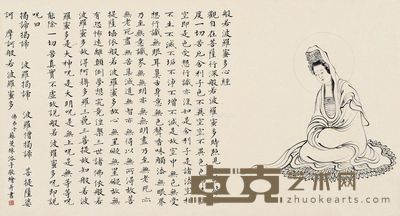 般若波羅蜜多心經
觀自在菩薩行深般若波羅蜜多時照見五蘊皆空
度一切苦厄舍利子色不異空空不異色色即是空
空即是色受想行識亦復如是舍利子是諸法空相
不生不滅不垢不淨不增不減是故空中無色無受
想行識無眼耳鼻舌身意無色聲香味觸法無眼界
乃至無意識界無無明亦無無明盡乃至無老死亦
無老死盡無苦集滅道無智亦無得以無所得故菩
提薩埵依般若波羅蜜多故心無罣礙無罣礙故無
有恐怖遠離顛倒夢想究竟涅槃三世諸佛依般若
波羅蜜多故得阿耨多羅三藐三菩提故知般若波
羅蜜多是大神呪是大明呪是無上呪是無等等呪
能除一切苦真實不虛故說般若波羅蜜多呪即說
呪曰
揭諦揭諦 波羅揭諦 波羅僧揭諦 菩提薩婆
訶 摩訶般若波羅蜜多
艺术网
zhuokearts.com